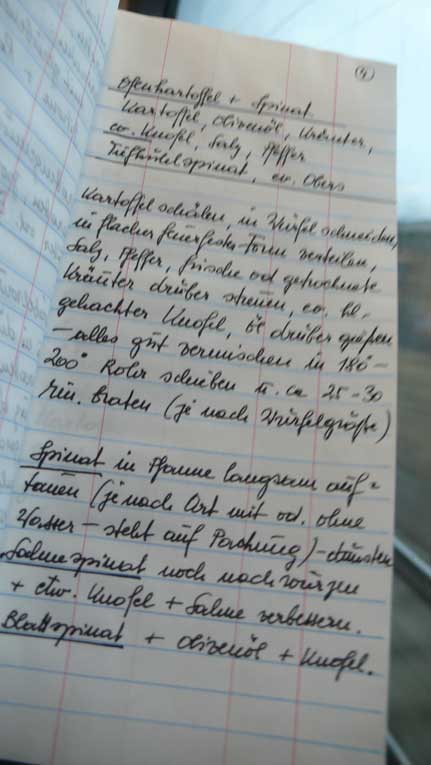 4
Ofenkartoffel + Spinat
Kartoffel, Olivenöl, Kräuter,
ev. Knofel, Salz, Pfeffer
Tiefkühlspinat, ev. Obers
Kartoffel schälen, in Würfel schneiden,
in flacher feuerfester Form verteilen,
Salz, Pfeffer, frische od getrocknete
Kräuter drüber streuen, ev. kl.
gehackter Knofel, Öl drüber gießen
– alles gut vermischen in 180–
200° Rohr schieben u. ca 25–30
Min. braten (je nach Würfelgröße)
Spinat in Pfanne langsam auf=
tauen (je nach Art mit od. ohne
Wasser – steht auf Packung) – dünsten
Sahnespinat noch nach würzen
+ etw. Knofel + Sahne verbessern.
Blattspinat + Olivenöl + Knofel.